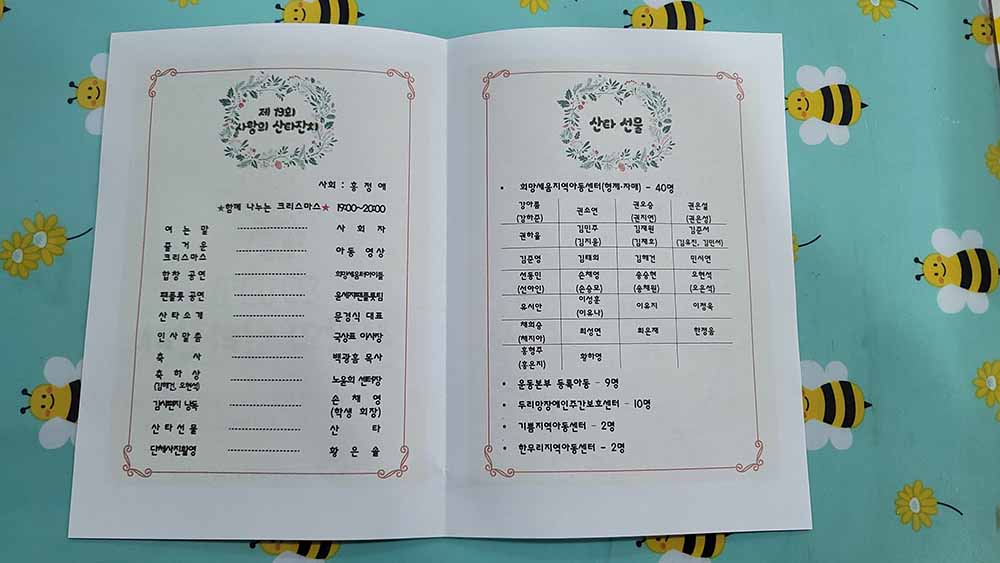 제 19회
사랑의 산타잔치
사회 : 홍정애
★함께 나누는 크리스마스★ 19:00~20:00
여는말 ---------------- 사회자
즐거운 크리스마스 ---------------- 아동 영상
합창 공연 ---------------- 희망세움터아이들
팬플룻 공연 ---------------- 윤세지팬플룻팀
산타소개 ---------------- 문경식 대표
인사말씀 ---------------- 국상표 이사장
축사 ---------------- 백광흠 목사
축하상 (김해건, 오현석) ---------------- 노윤희 센터장
감사편지 낭독 ---------------- 손채영 (학생 회장)
산타선물 ---------------- 산타
단체사진촬영 ---------------- 황은솔
산타 선물
• 희망세움지역아동센터(형제·자매) - 40명
강아름 (강하준) 권소연 권오승 (권지연) 권은설 (권은성)
권하율 김민주 (김지윤) 김재원 (김재호) 김준서 (김유진, 김민서)
김준영 김태희 김해건 민시연
선동민 (선아인) 손채영 (손승모) 송승현 (송채원) 오현석 (오은석)
유시안 이성훈 (이유나) 이유지 이정욱
채희승 (채지아) 최성연 최은재 한정음
홍형주 (홍은지) 황하영
• 운동본부 등록아동 - 9명
• 두리망장애인주간보호센터 - 10명
• 기쁨지역아동센터 - 2명
• 한무리지역아동센터 - 2명